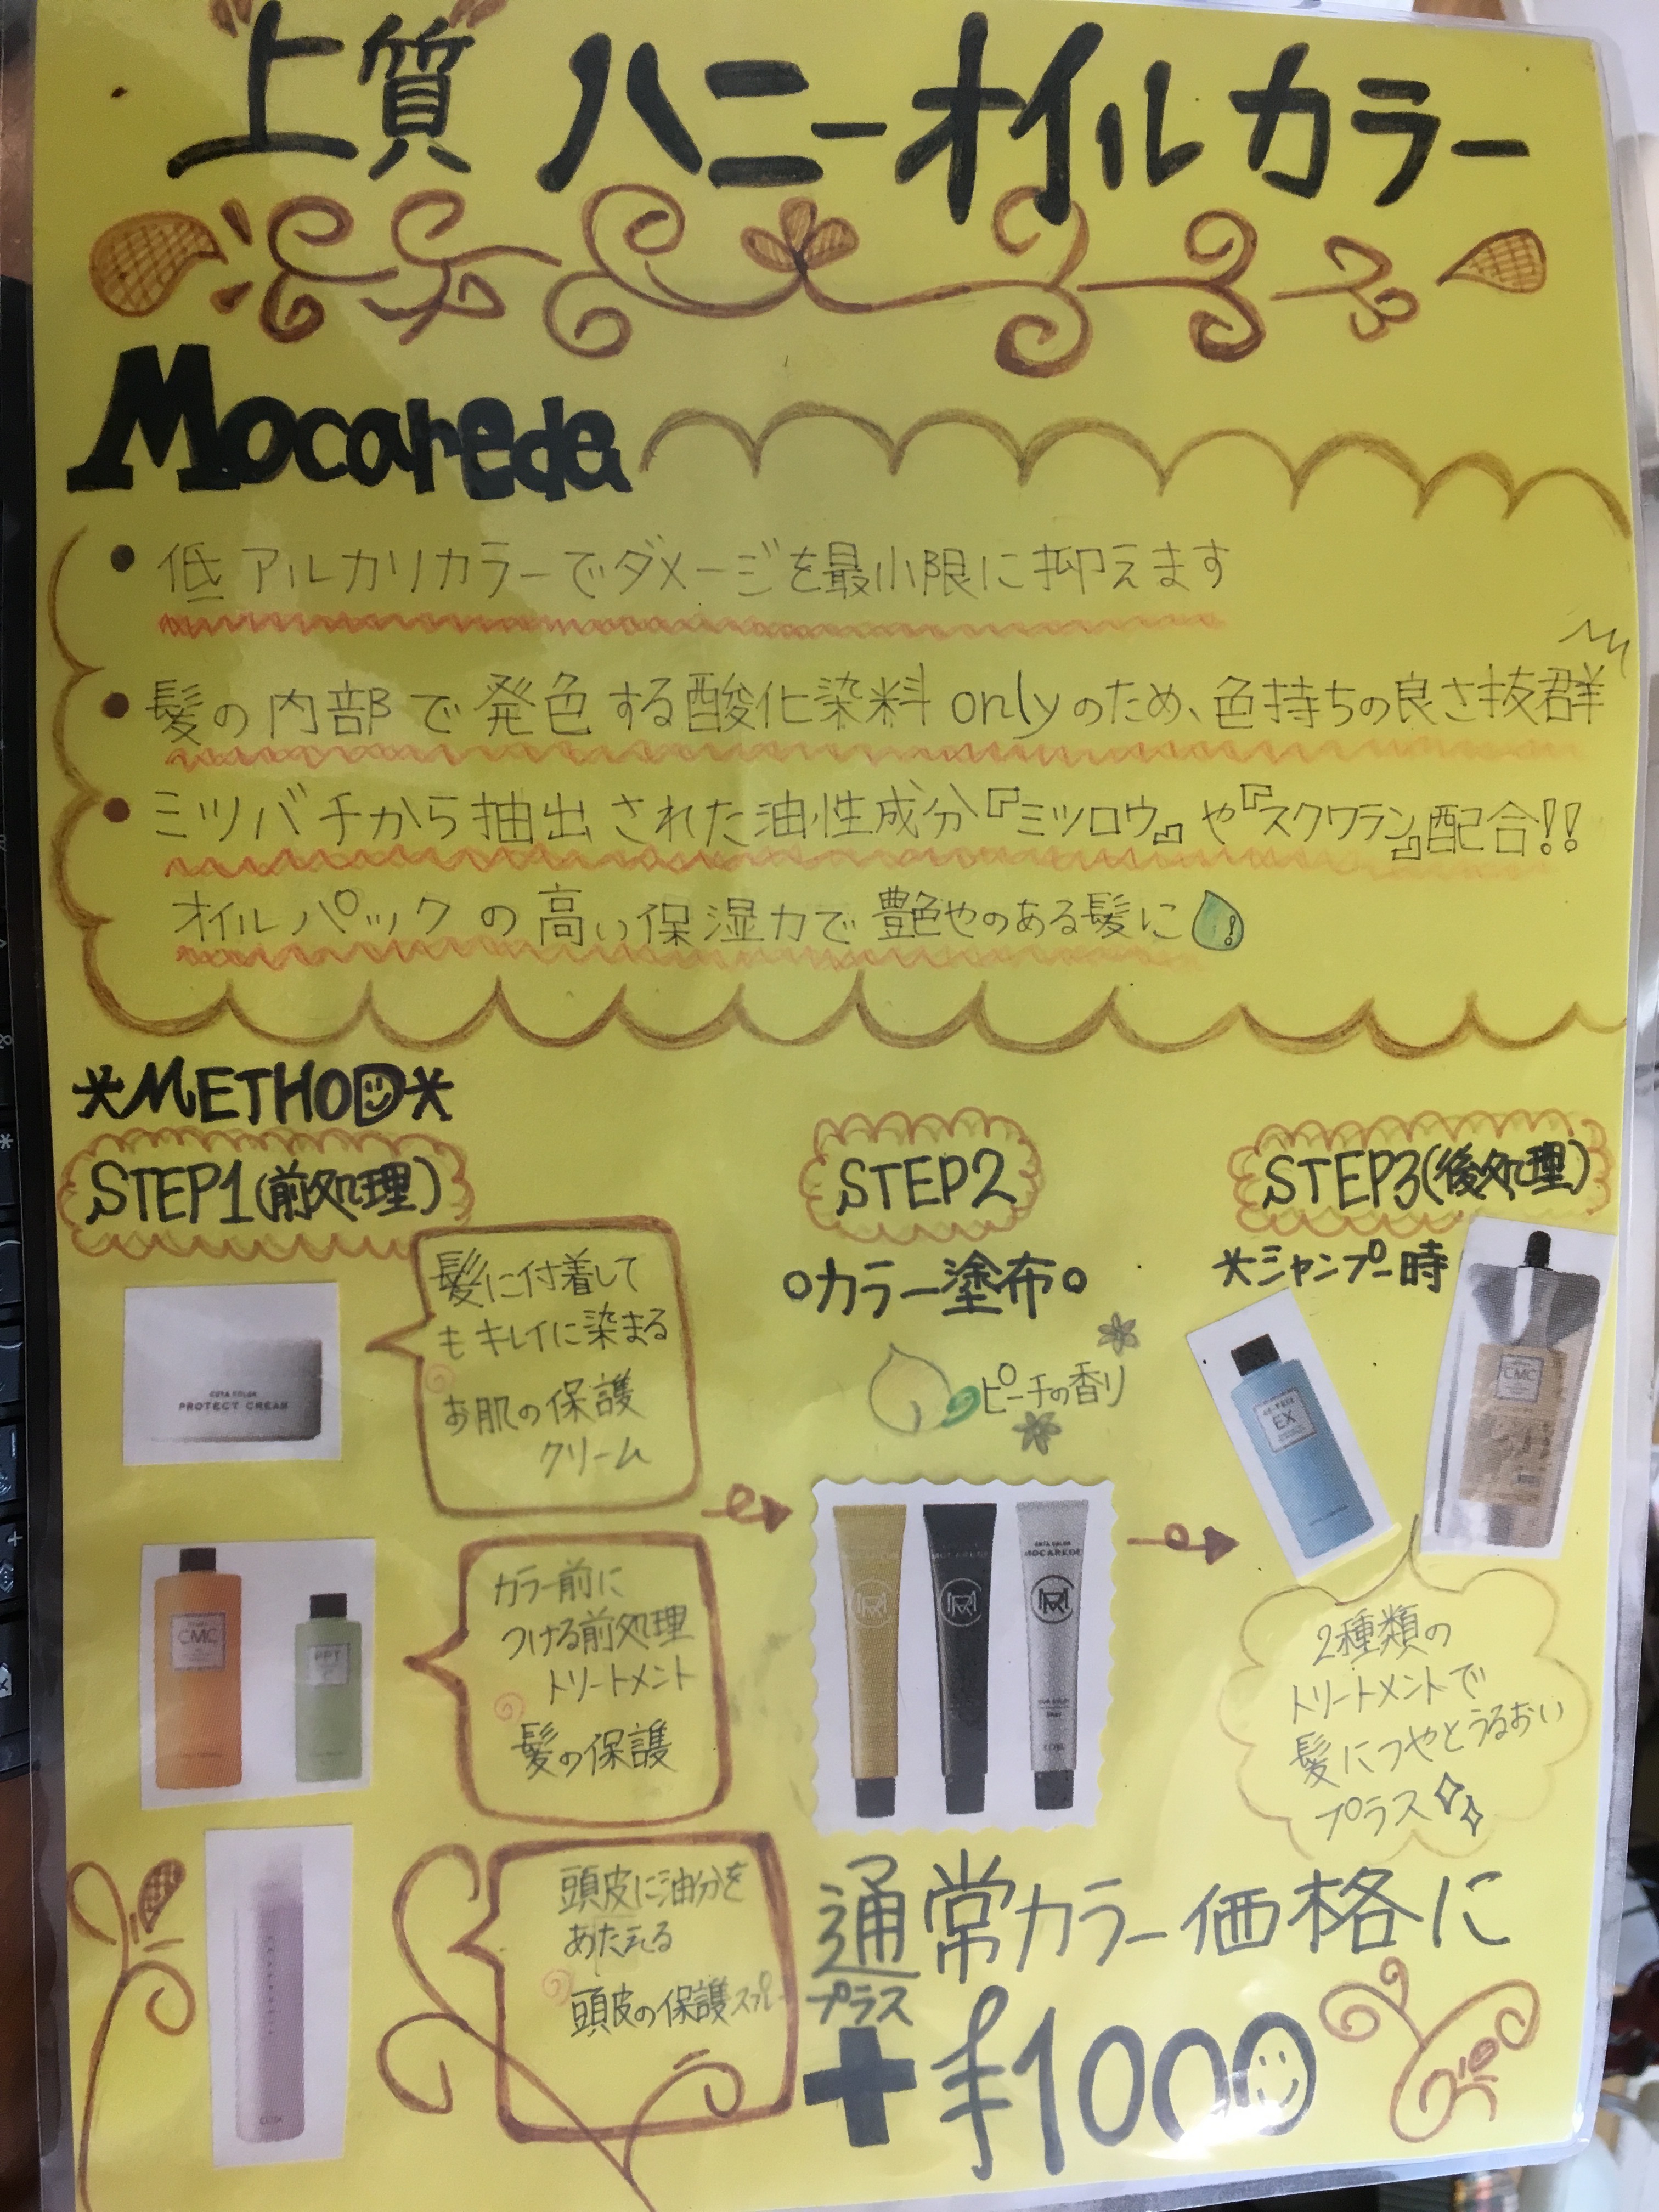 上質 ハニーオイルカラー
Mocareda
• 低アルカリカラーでダメージを最小限に抑えます
• 髪の内部で発色する酸化染料onlyのため、色持ちの良さ抜群
• ミツバチから抽出された油性成分『ミツロウ』や『スクワラン』配合!!
オイルパックの高い保湿力で艶やのある髪に!
*METHOD*
STEP1(前処理)
髪に付着して
もキレイに染まる
お肌の保護
クリーム
CUTA COLOR
PROTECT CREAM
カラー前に
つける前処理
トリートメント
髪の保護
CMC
PPT
頭皮に油分を
あたえる
頭皮の保護スプレー
STEP2
カラー塗布
ピーチの香り
MOCAREDE
STEP3(後処理)
*シャンプー時
EX
CMC
2種類の
トリートメントで
髪につやとうるおい
プラス
通常カラー価格に
プラス
+¥1000